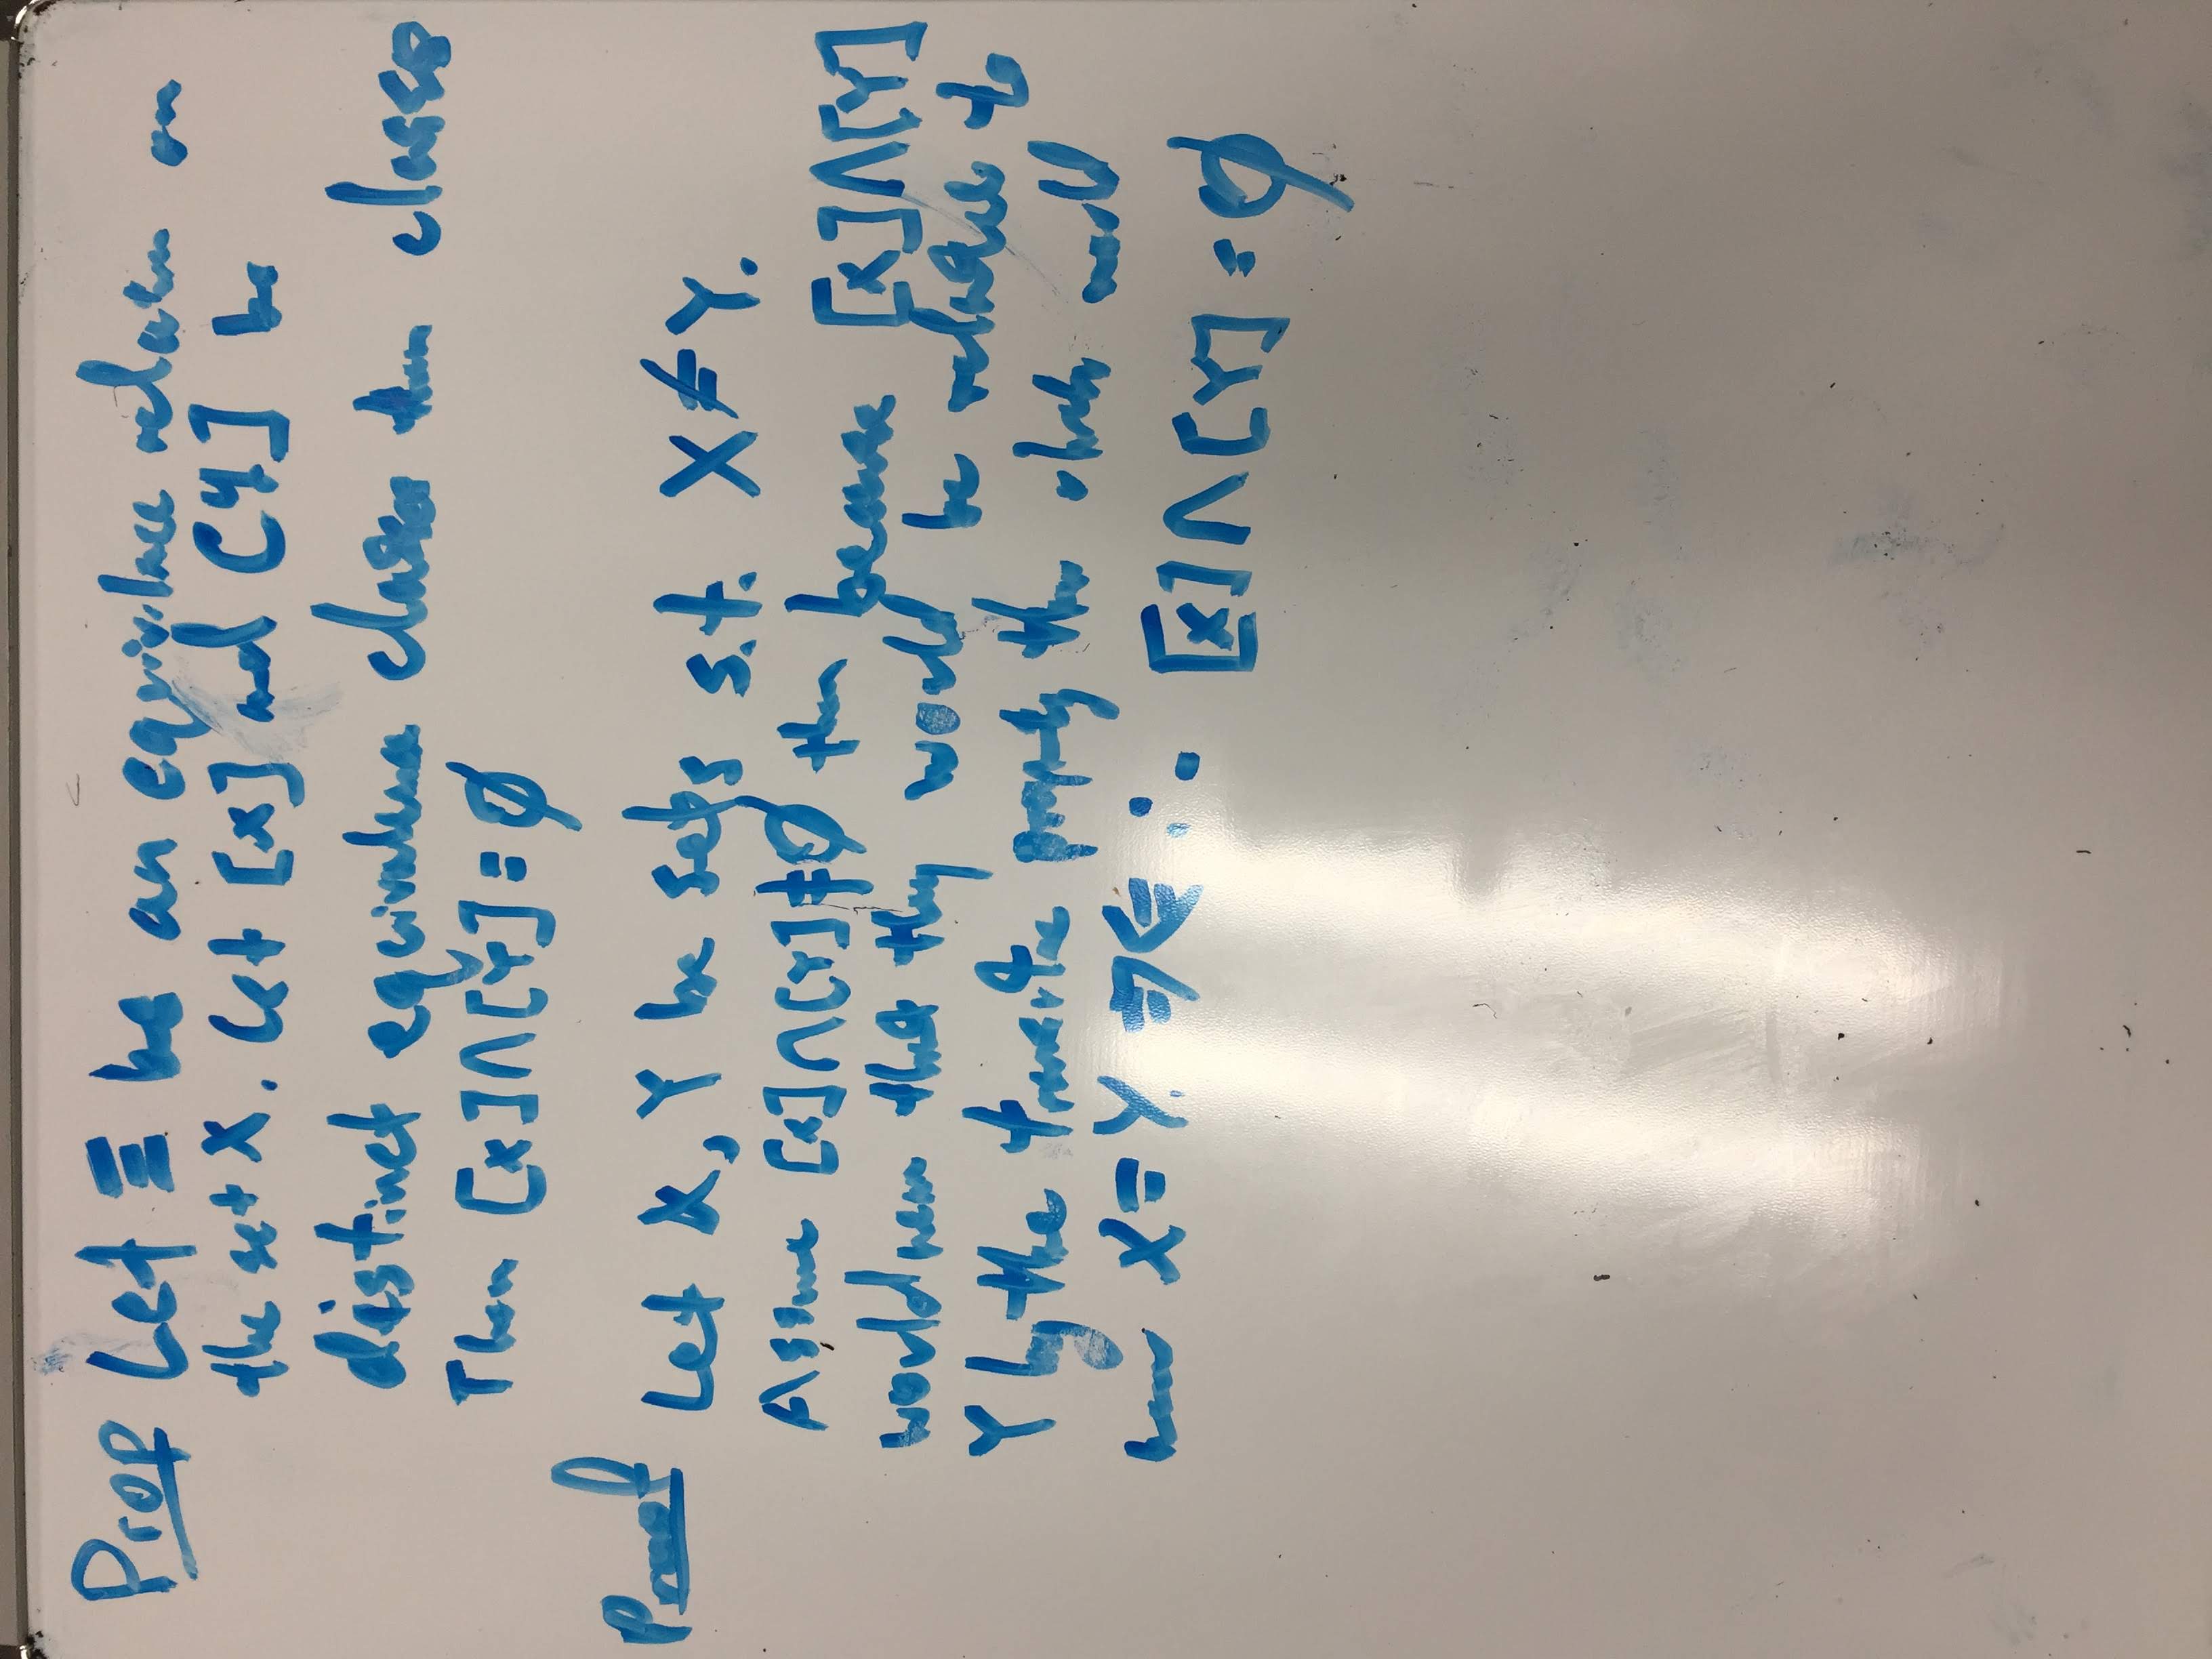 Prop Let ≡ be an equivalence relation on
the set X. Let [x] and [y] be
distinct equivalence classes then classes
Then [x]∩[Y]=∅
Proof Let X, Y be sets s.t. X≠Y.
Assume [x]∩[Y]≠∅ then because [x]∩[Y]
would mean that they would be related to
Y by the transitive property then which would
mean X=Y. ⇒⇐ ∴ [x]∩[Y]=∅